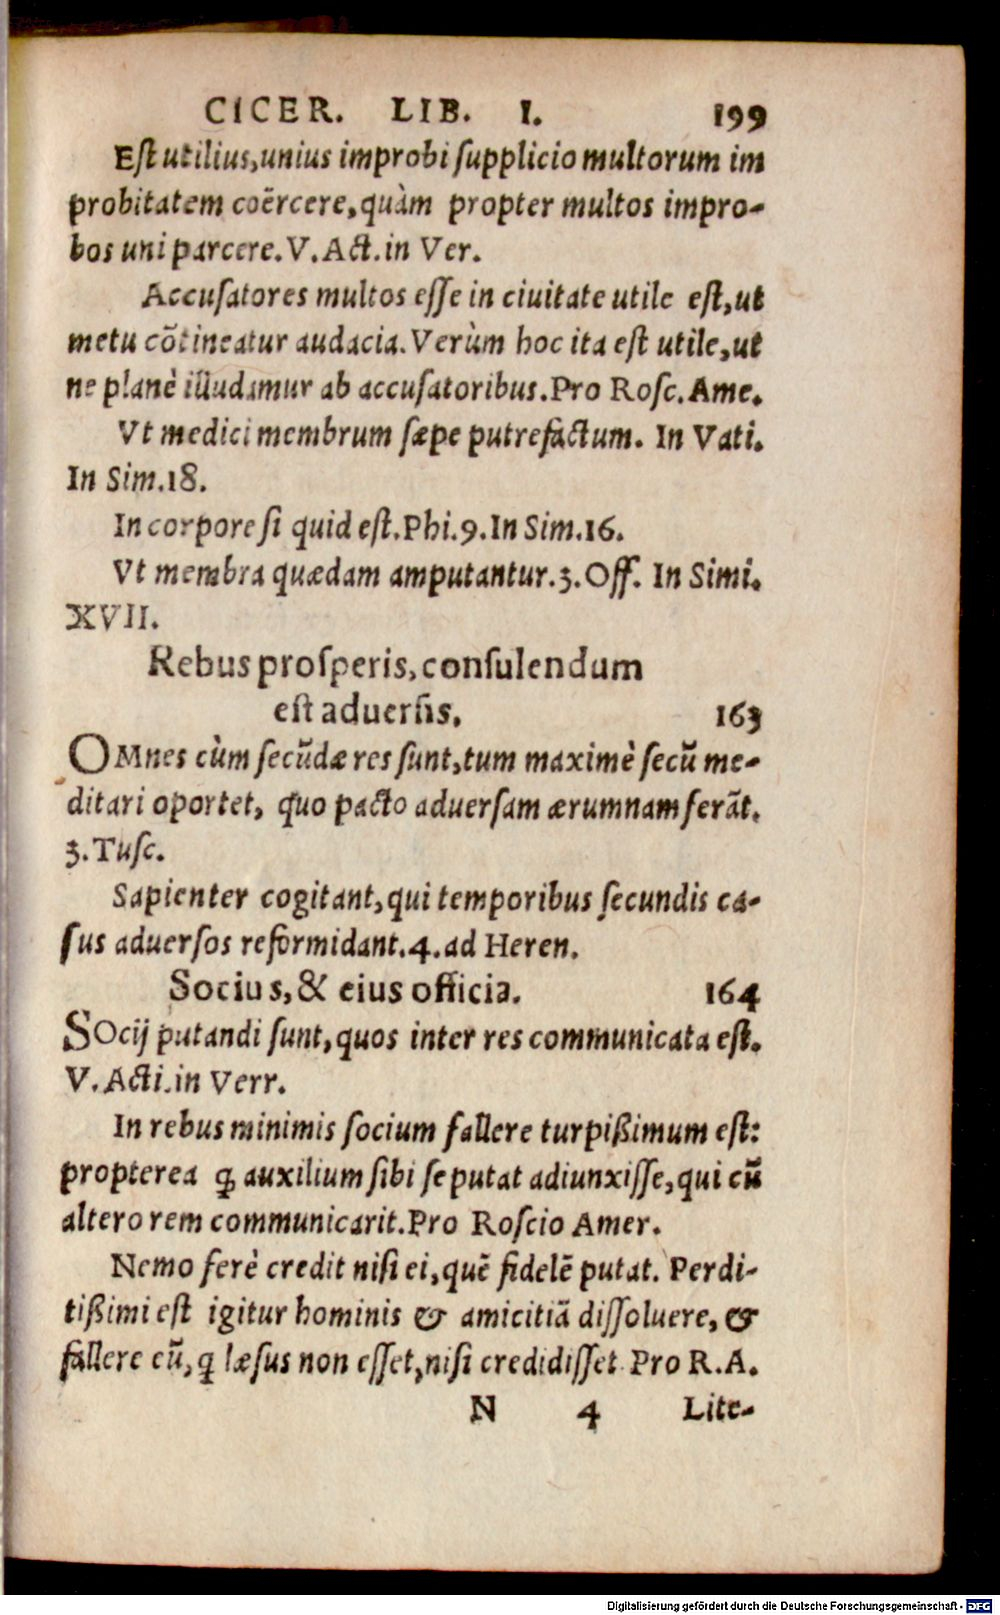 CICER. LIB. I. 199
Eſt utilius,unius improbi ſupplicio multorum im
probitatem coërcere,quàm propter multos impro-
bos uni parcere.V.Act.in Ver.
Accuſatores multos eſſe in ciuitate utile eſt,ut
metu cõtineatur audacia.Verùm hoc ita eſt utile,ut
ne planè illudamur ab accuſatoribus.Pro Roſc.Ame.
Vt medici membrum ſæpe putrefactum. In Vati.
In Sim.18.
In corpore ſi quid eſt.Phi.9.In Sim.16.
Vt membra quædam amputantur.3.Off. In Simi.
XVII.
Rebus proſperis,conſulendum
eſt aduerſis. 163
OMnes cùm ſecũdæ res ſunt,tum maximè ſecũ me-
ditari oportet, quo pacto aduerſam ærumnam ferãt.
3.Tuſc.
Sapienter cogitant,qui temporibus ſecundis ca-
ſus aduerſos reformidant.4.ad Heren.
Socius,& eius officia. 164
SOcij putandi ſunt,quos inter res communicata eſt.
V.Acti.in Verr.
In rebus minimis ſocium fallere turpißimum eſt:
propterea ꝙ auxilium ſibi ſe putat adiunxiſſe,qui cũ
altero rem communicarit.Pro Roſcio Amer.
Nemo ferè credit niſi ei,quẽ fidelẽ putat. Perdi-
tißimi eſt igitur hominis & amicitiã diſſoluere, &
fallere eũ,ꝗ læſus non eſſet,niſi credidiſſet. Pro R.A.
N 4 Lite-
Digitalisierung gefördert durch die Deutsche Forschungsgemeinschaft - DFG